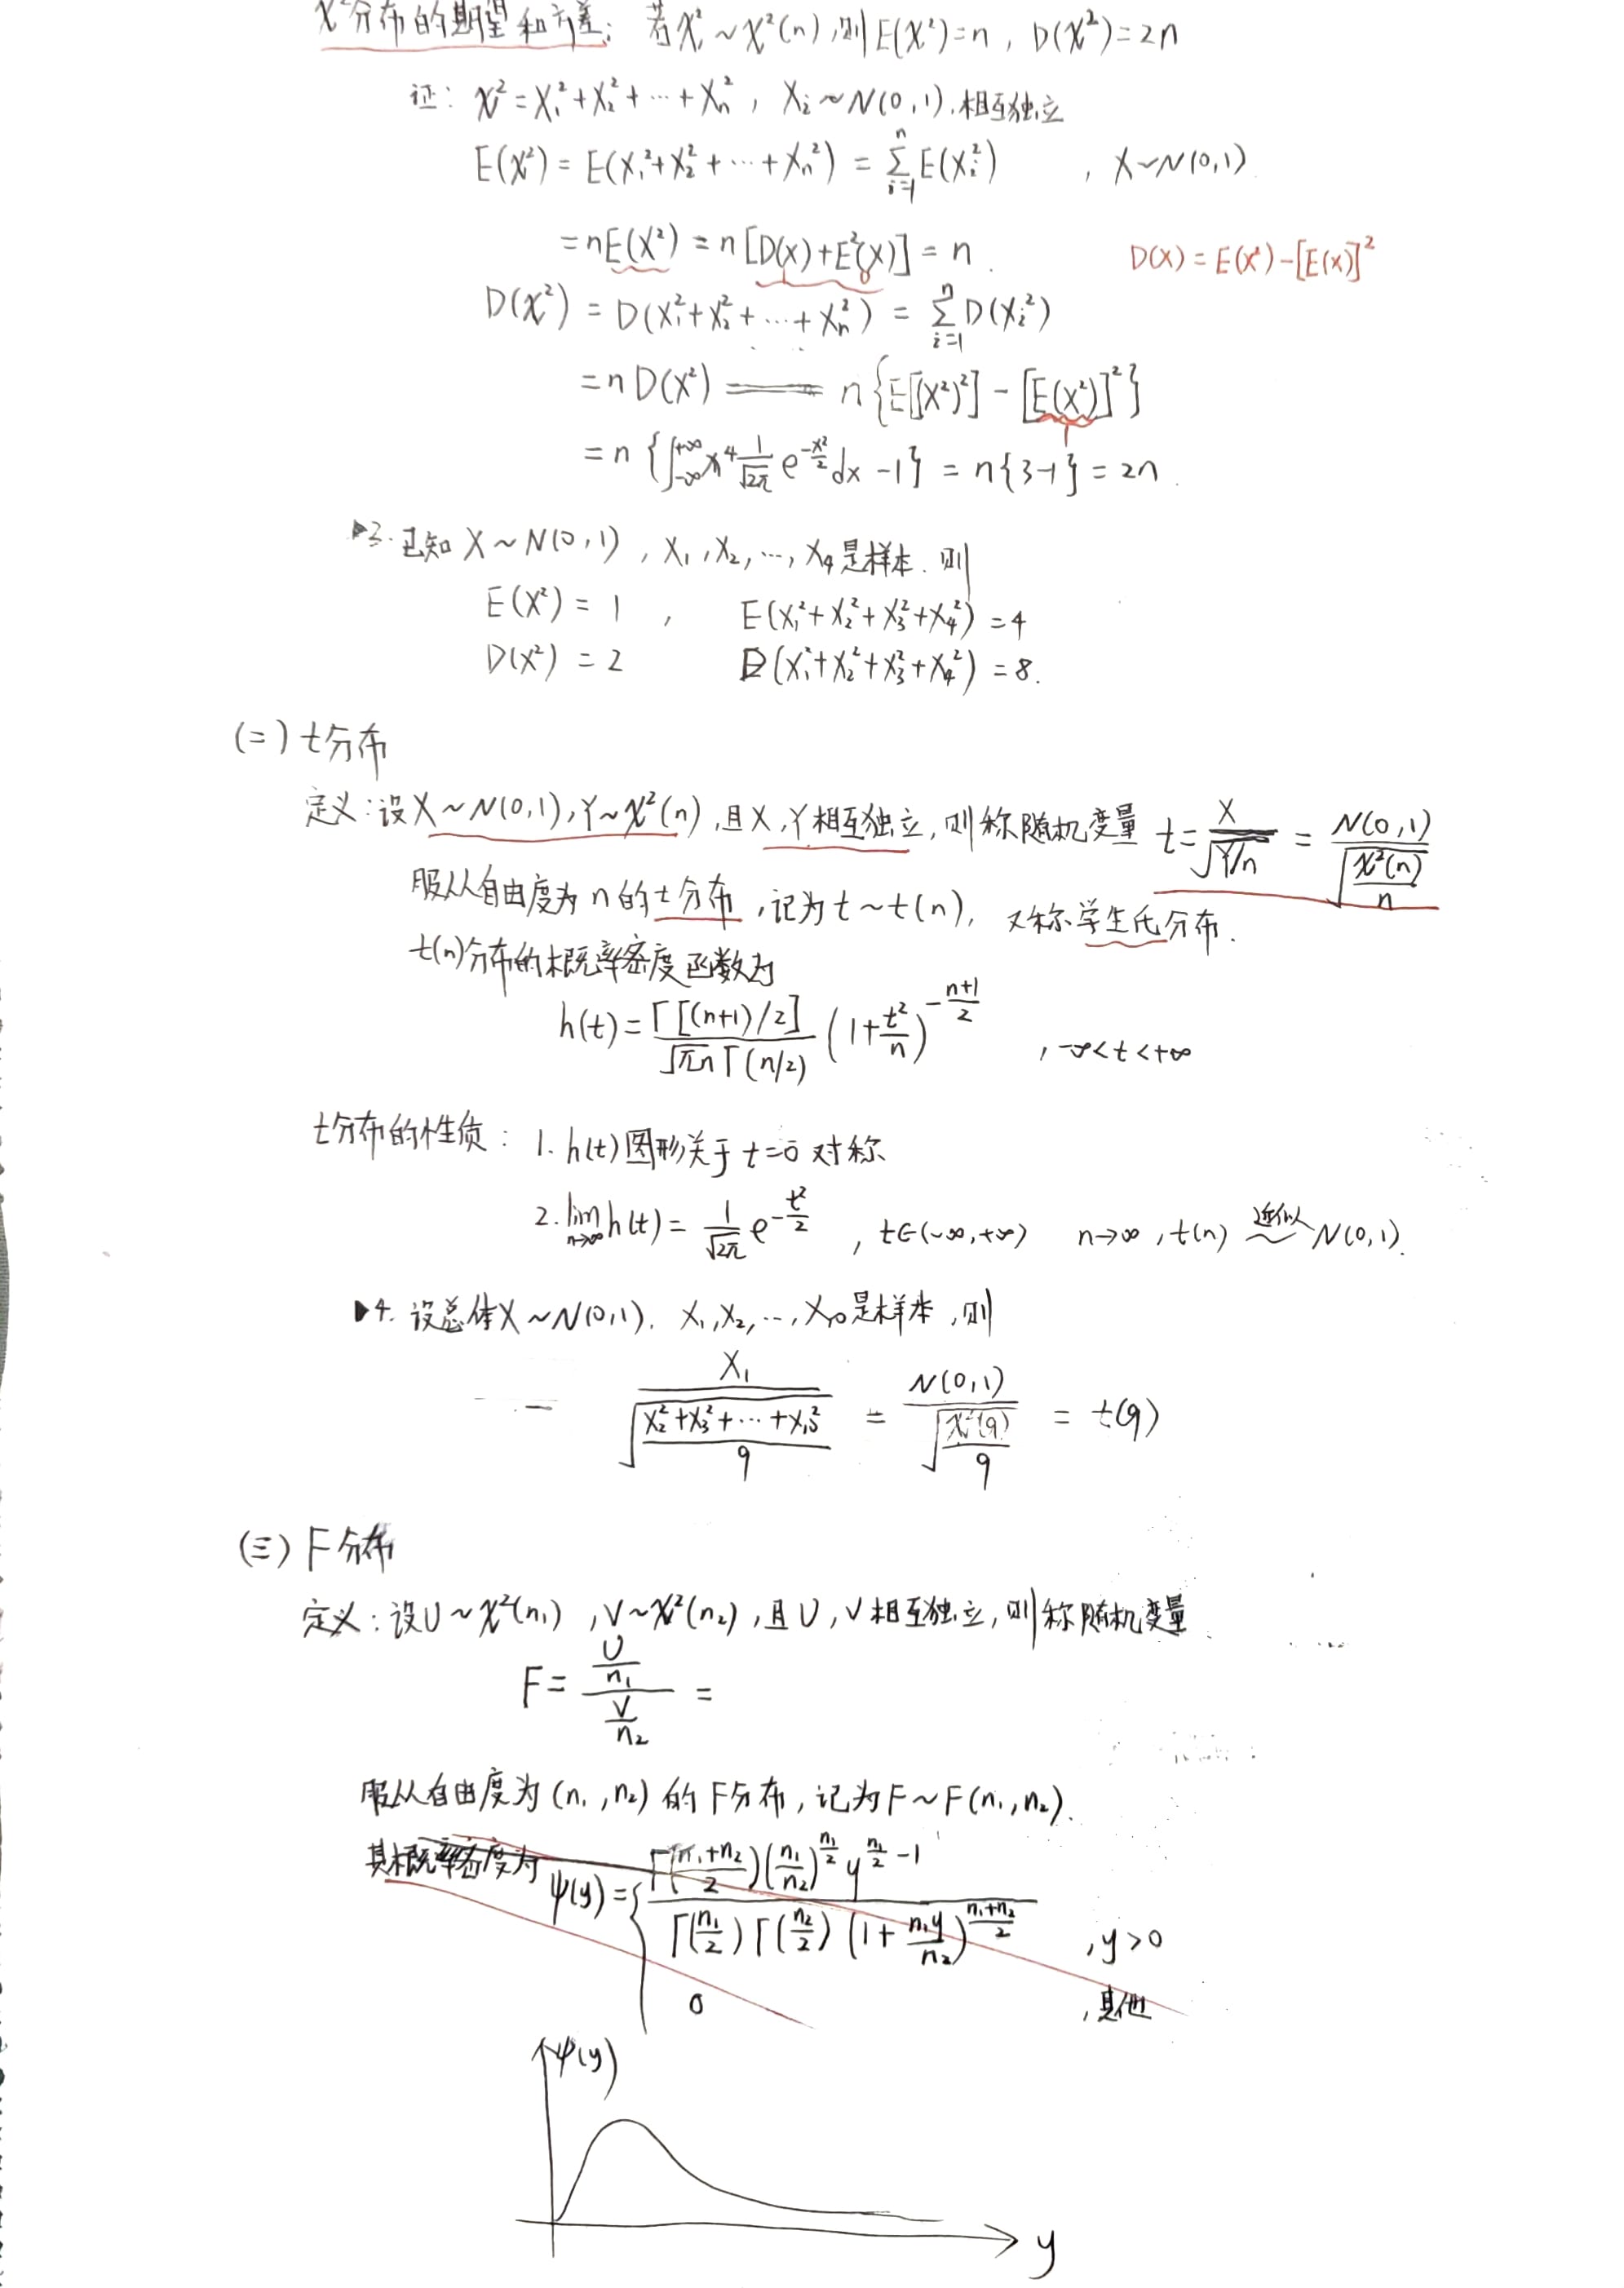 χ²分布的期望和方差: 若χ²~χ²(n),则E(χ²)=n, D(χ²)=2n
证: χ²=X₁²+X₂²+⋯+Xₙ², Xᵢ~N(0,1).相互独立
E(χ²)=E(X₁²+X₂²+⋯+Xₙ²)=∑ᵢ₌₁ⁿE(Xᵢ²) , X~N(0,1)
=nE(X²)=n[D(X)+E²(X)]=n. D(X)=E(X²)-[E(X)]²
1 0
D(χ²)=D(X₁²+X₂²+⋯+Xₙ²)=∑ᵢ₌₁ⁿD(Xᵢ²)
=nD(X²)══n{E[(X²)²]-[E(X²)]²}
1
=n{∫₋∞⁺∞ x⁴ 1/√2π e^(-x²/2)dx-1}=n{3-1}=2n.
▶3.已知X~N(0,1), X₁,X₂,⋯,X₄是样本.则
E(X²)=1, E(X₁²+X₂²+X₃²+X₄²)=4
D(X²)=2 D(X₁²+X₂²+X₃²+X₄²)=8.
(二) t分布
定义:设X~N(0,1),Y~χ²(n),且X,Y相互独立,则称随机变量 t=X/√(Y/n)=N(0,1)/√(χ²(n)/n)
服从自由度为n的t分布,记为t~t(n), 又称学生氏分布.
t(n)分布的概率密度函数为
h(t)=Γ[(n+1)/2]/(√πn Γ(n/2)) (1+t²/n)^(-(n+1)/2) , -∞<t<+∞
t分布的性质: 1. h(t)图形关于t=0对称
2. lim n→∞ h(t)=1/√2π e^(-t²/2), t∈(-∞,+∞) n→∞, t(n) 近似~ N(0,1).
▶4. 设总体X~N(0,1). X₁,X₂,⋯,X₁₀是样本,则
X₁/√((X₂²+X₃²+⋯+X₁₀²)/9) = N(0,1)/√(χ²(9)/9) = t(9)
(三) F分布
定义:设U~χ²(n₁), V~χ²(n₂),且U,V相互独立,则称随机变量
F=(U/n₁)/(V/n₂)=
服从自由度为(n₁,n₂)的F分布,记为F~F(n₁,n₂).
其概率密度为 ψ(y)={Γ((n₁+n₂)/2)(n₁/n₂)^(n₁/2) y^(n₁/2-1)/(Γ(n₁/2)Γ(n₂/2)(1+n₁y/n₂)^((n₁+n₂)/2)) , y>0
0 ,其他
ψ(y)
y